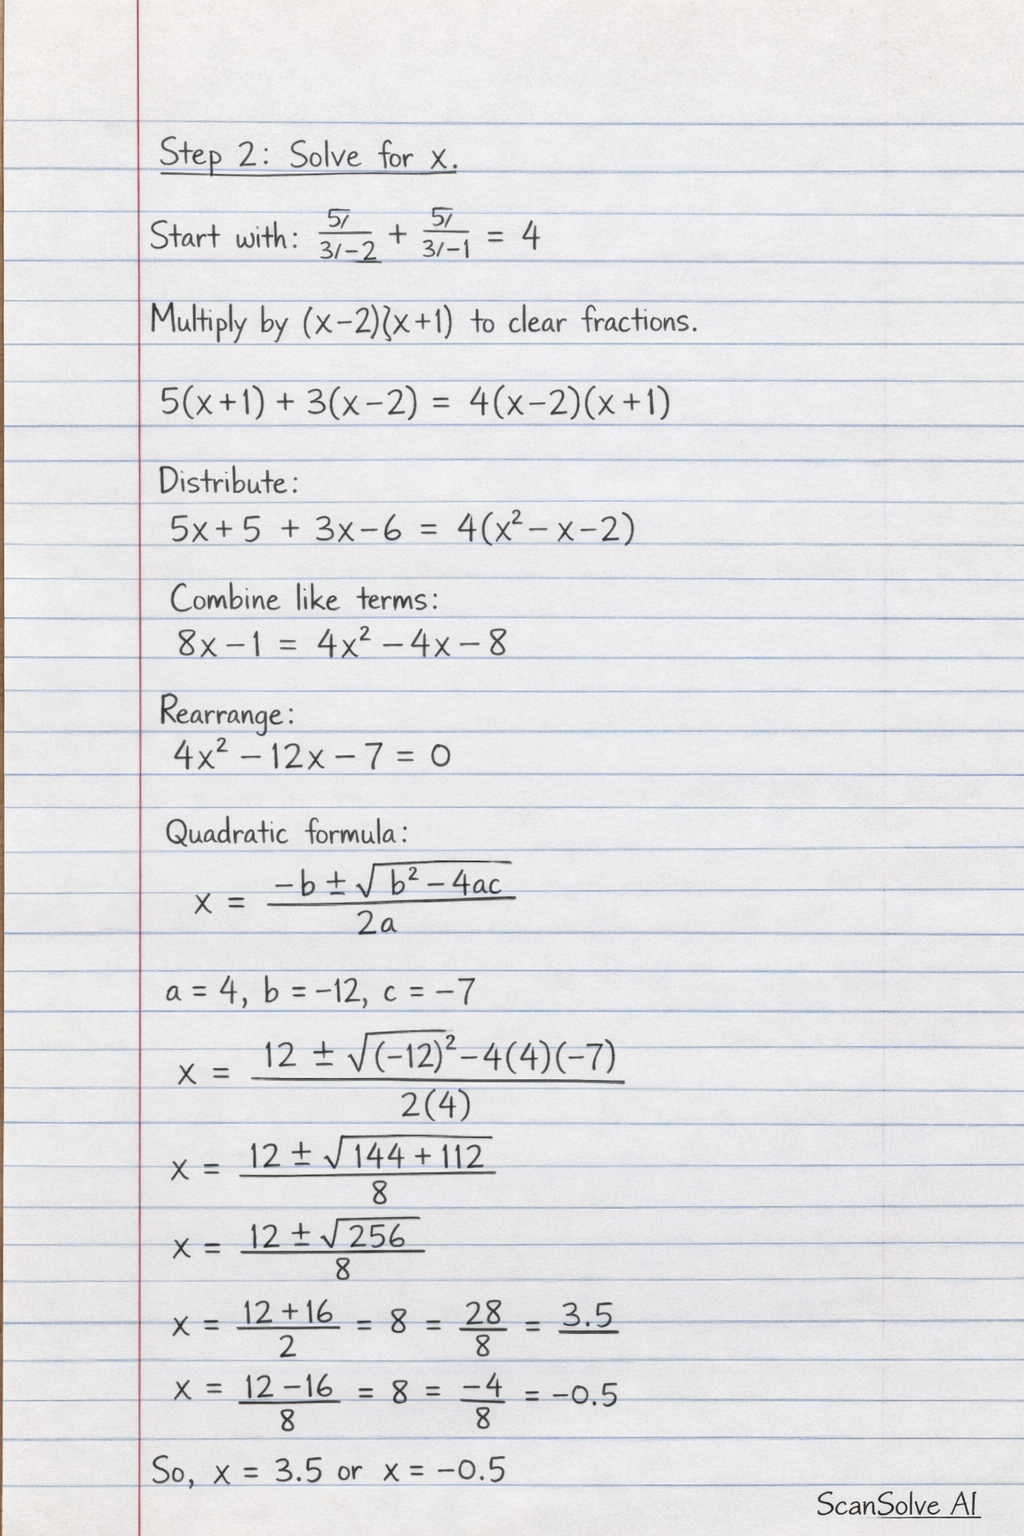 Step 2: Solve for x.
Start with: 5/ / 3/-2 + 5/ / 3/-1 = 4
Multiply by (x-2)(x+1) to clear fractions.
5(x+1) + 3(x-2) = 4(x-2)(x+1)
Distribute:
5x+5 + 3x-6 = 4(x² - x - 2)
Combine like terms:
8x-1 = 4x² - 4x - 8
Rearrange:
4x² - 12x - 7 = 0
Quadratic formula:
x = -b ± √b² - 4ac / 2a
a = 4, b = -12, c = -7
x = 12 ± √(-12)² - 4(4)(-7) / 2(4)
x = 12 ± √144 + 112 / 8
x = 12 ± √256 / 8
x = 12+16 / 2 = 8 = 28 / 8 = 3.5
x = 12-16 / 8 = 8 = -4 / 8 = -0.5
So, x = 3.5 or x = -0.5
ScanSolve AI